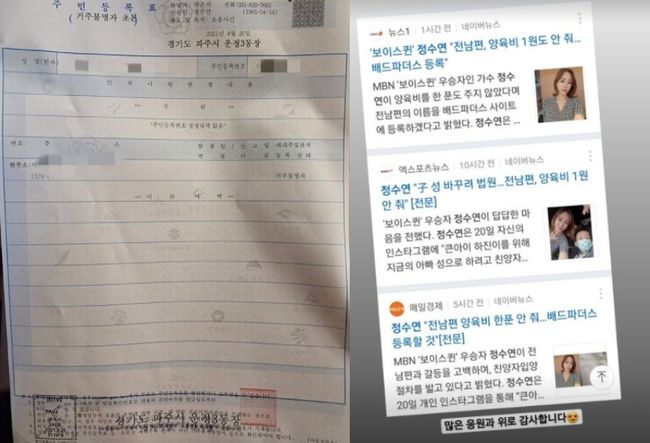 주 민 등 록 표
(거주불명자 초본)
2021년 8월 20일
경기도 파주시 운정3동장
성 명(한자)
주민등록번호
인 적 사 항 변 경 내 용
"주민등록번호 정정내역 없음"
번 호
주 소
현주소
거주불명자
- 이 하 여 백 -
경기도 파주시 운정3동장
뉴스1 1시간 전 네이버뉴스
'보이스퀸' 정수연 "전남편, 양육비 1원도 안 줘...
배드파더스 등록"
MBN '보이스퀸' 우승자인 가수 정수
연이 양육비를 한 푼도 주지 않았다며
전남편의 이름을 배드파더스 사이트
에 등록하겠다고 밝혔다. 정수연은 ..
엑스포츠뉴스 10시간 전 네이버뉴스
정수연 "子 성 바꾸려 법원...전남편, 양육비 1원
안 줘" [전문]
'보이스퀸' 우승자 정수연이 답답한 마
음을 전했다. 정수연은 20일 자신의
인스타그램에 "큰아이 하진이를 위해
지금의 아빠 성으로 하려고 친양자...
매일경제 5시간 전 네이버뉴스
정수연 "전남편 양육비 한푼 안 줘...배드파더스
등록할 것"[전문]
MBN '보이스퀸' 우승자 정수연이 전
남편과 갈등을 고백하며, 친양자입양
절차를 밟고 있다고 밝혔다. 정수연은
20일 개인 인스타그램을 통해 "큰아...
많은 응원과 위로 감사합니다😍